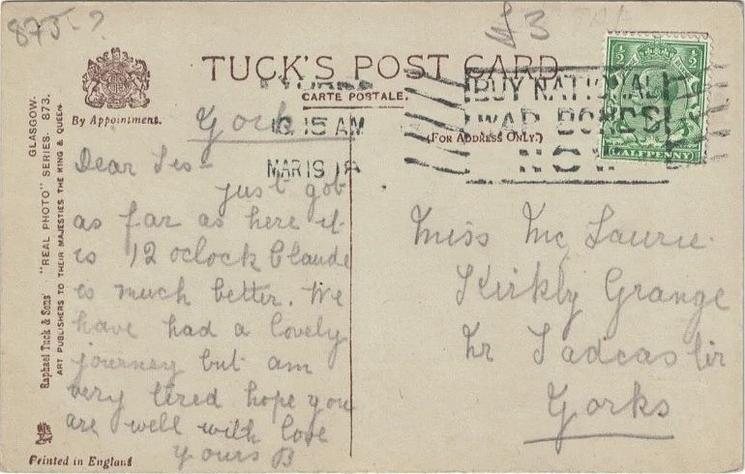 875-?
3
TUCK'S POST CARD
CARTE POSTALE.
By Appointment.
(FOR ADDRESS ONLY.)
10 15 AM
MAR 19 18
BUY NATIONAL
WAR BONDS
NOW
1/2 1/2
HALFPENNY
GLASGOW.
"REAL PHOTO" SERIES 873.
Raphael Tuck & Sons'
ART PUBLISHERS TO THEIR MAJESTIES THE KING & QUEEN
York
Dear Sis-
just got
as far as here it
is 12 oclock Claude
is much better. We
have had a lovely
journey but am
very tired hope you
are well with love
yours B
Miss Mc Laurie.
Kirkly Grange
Nr Tadcaster
Yorks
Printed in England